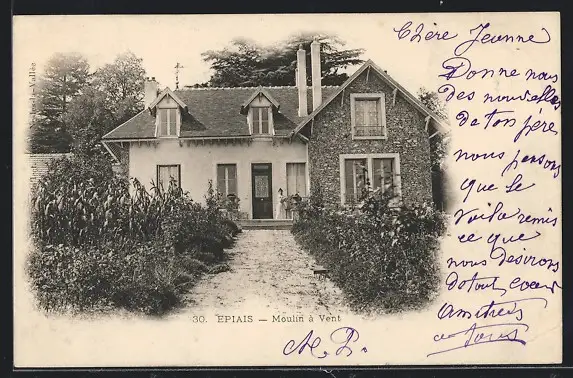 Chère Jeanne
Donne nous
des nouvelles
de ton père
nous pensons
que le
voilà remis
ce que
nous désirons
de tout coeur
amitiés
a tous
30. EPIAIS — Moulin à Vent
M. P.